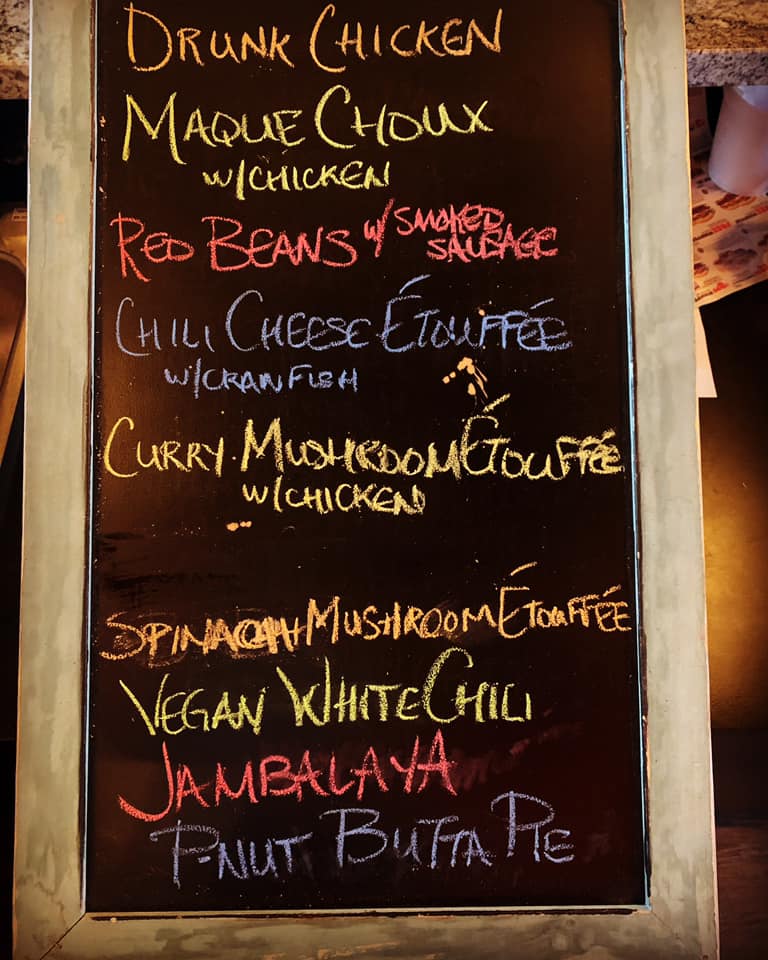 DRUNK CHICKEN
MAQUE CHOUX
W/CHICKEN
RED BEANS W/ SMOKED
SAUSAGE
CHILI CHEESE ÉTOUFFÉE
W/CRAWFISH
CURRY MUSHROOM ÉTOUFFÉE
W/CHICKEN
SPINACH MUSHROOM ÉTOUFFÉE
VEGAN WHITE CHILI
JAMBALAYA
P-NUT BUTTA PIE